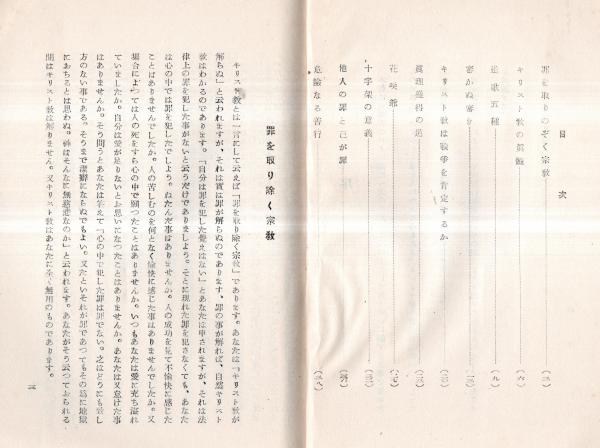 目次
罪を取りのぞく宗敎……(三)
キリスト敎の眞髄……(六)
近歌五種……(九)
審かぬ審き……(一三)
キリスト敎は戰爭を肯定するか
眞理獲得の足……(二三)
花咲爺……(二七)
十字架の意義……(三一)
他人の罪と己が罪
危險なる苦行……(三八)
罪を取り除く宗敎
キリスト敎とは一言にして云えば「罪を取り除く宗敎」であります。あなたは「キリスト敎が
解らぬ」と云われますが、それは實は罪が解らぬのであります、罪の事が解れば、自然キリスト
敎はわかるのであります。「自分は罪を犯した覺えはない」とあなたは申されますが、それは法
律上の罪を犯した事がないと云うだけでありましよう。そとに現れた罪を犯さなくても、あなた
は心の中では罪を犯したでしよう。ぬたんだ事はありませんか。人の成功を見て不愉快に感じた
ことはありませんでしたか。人の苦しむのを何となく愉快に感じた事はありませんでしたか。又
場合によつては人の死をすら心の中で願つたことはありませんか。いつもあなたは愛に充ち溢れ
ていましたか。自分は愛が足りないとお思いになつたことはありませんか。あなたは又怠けた事
はありませんか。そう問うとあなたは答えて「心の中で犯した罪は罪でない。之はどうにも致し
方のない事である。そうまで潔癖にならぬでもよい。又たといそれが罪であつてもその爲に地獄
におちるとは思わぬ。神はそんなに無慈悲なのか」と云われます。あなたがそう云つておられる
間はキリスト敎は解りません。又キリスト敎はあなたに全く無用のものであります。
三